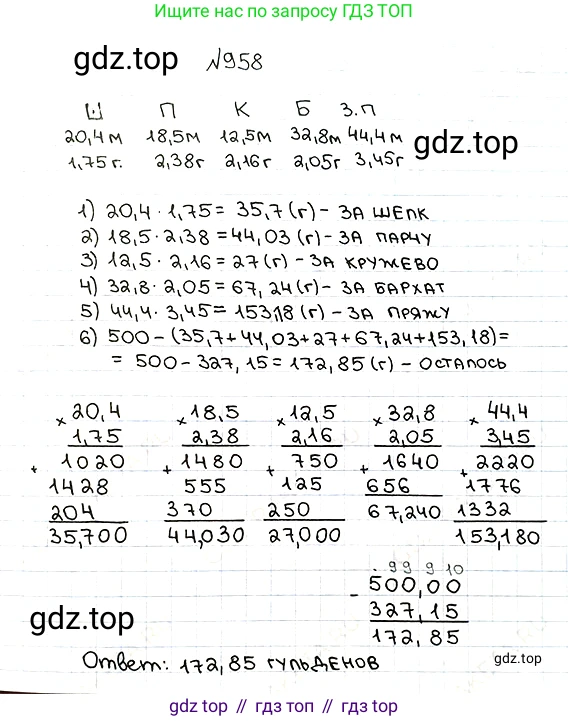 Ищите ответы по запросу ГДЗ ТОП
gdz.top №958
Ш П К Б З.П
20,4м 18,5м 12,5м 32,8м 44,4м
1,75г. 2,38г 2,16г 2,05г 3,45г
gdz.top
1) 20,4 · 1,75 = 35,7 (г) - ЗА ШЕЛК
2) 18,5 · 2,38 = 44,03 (г) - ЗА ПАРЧУ
3) 12,5 · 2,16 = 27 (г) - ЗА КРУЖЕВО
4) 32,8 · 2,05 = 67,24 (г) - ЗА БАРХАТ
5) 44,4 · 3,45 = 153,18 (г) - ЗА ПРЯЖУ
6) 500 - (35,7+44,03+27+67,24+153,18)=
= 500 - 327,15 = 172,85 (г) - ОСТАЛОСЬ
× 20,4 × 18,5 × 12,5 × 32,8 × 44,4
1,75 2,38 2,16 2,05 3,45
+ 1020 + 1480 + 750 + 1640 + 2220
1428 555 125 656 1776
204 370 250 67,240 1332
35,700 44,030 27,000 153,180
. 9 9 9 10
- 500,00
327,15
172,85
gdz.top
Ответ: 172,85 гульденов
gdz.top
gdz.top // гдз.топ // gdz.top // гдз.топ